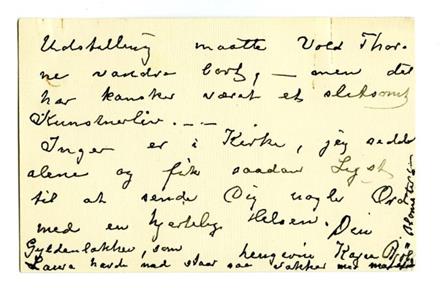 Udstilling maatte Vold Thor-
ne vandre bort, — men det
har kanskee været et slitsomt
Kunstnerliv. — —
Inger er i Kirke, jeg sidder
alene og fik saadan Lyst
til at sende Dig nogle Ord
med en hjertelig Hilsen. Din
Gyldenlakker, som hengivne Kaja
Laura havde med staar saa vakker